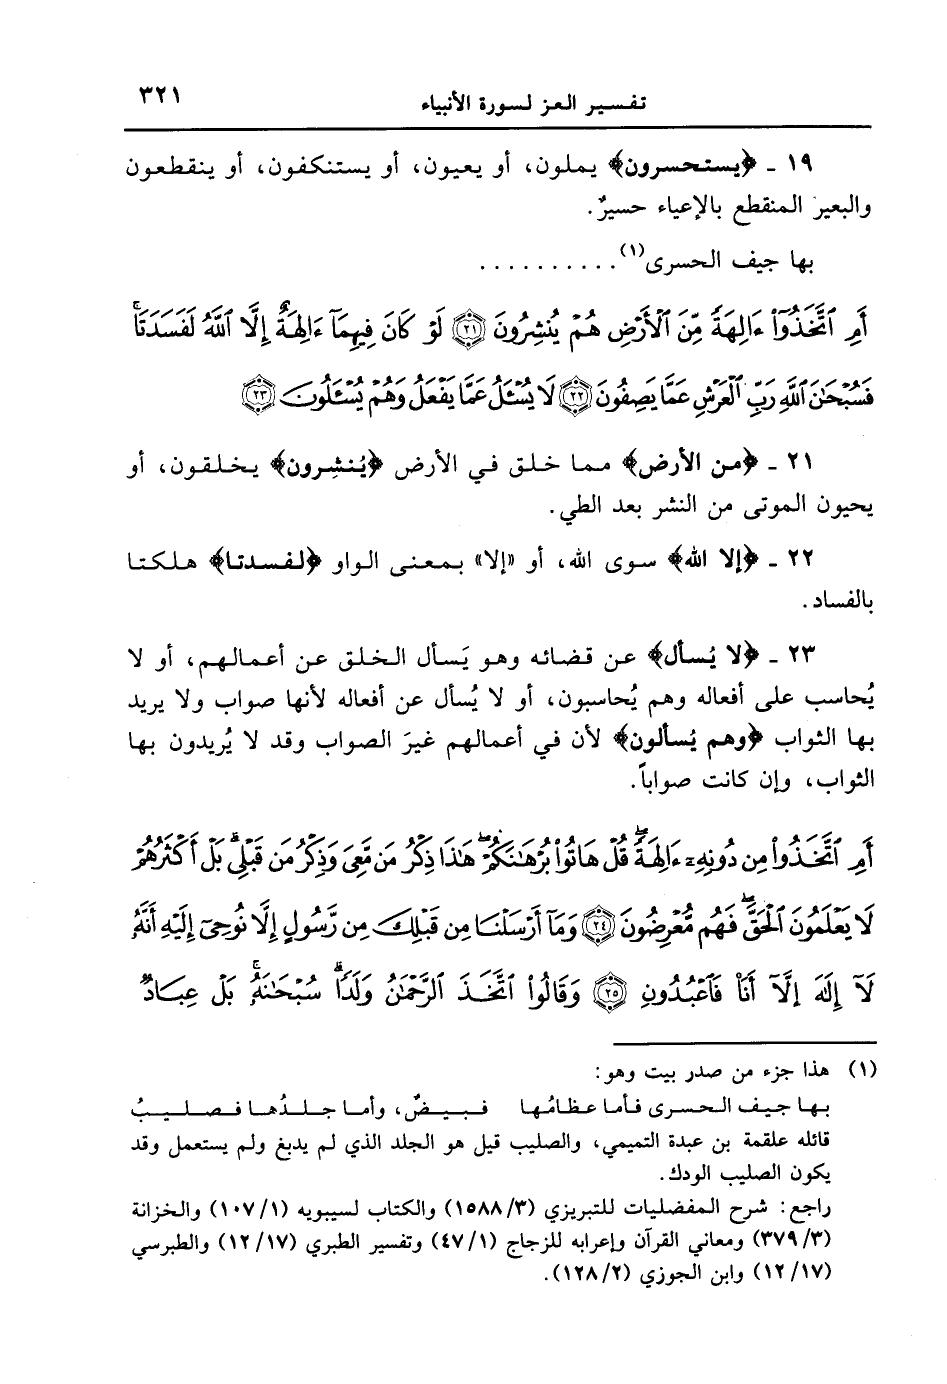 تفسير العز لسورة الأنبياء ٣٢١
١٩ ـ ﴿يستحسرون﴾ يملون، أو يعيون، أو يستنكفون، أو ينقطعون
والبعير المنقطع بالإعياء حسيرٌ.
بها جيف الحسرى(١) . . . . . . . . . .
أَمِ ٱتَّخَذُوٓا۟ ءَالِهَةً مِّنَ ٱلْأَرْضِ هُمْ يُنشِرُونَ ﴿٢١﴾ لَوْ كَانَ فِيهِمَآ ءَالِهَةٌ إِلَّا ٱللَّهُ لَفَسَدَتَا ۚ
فَسُبْحَٰنَ ٱللَّهِ رَبِّ ٱلْعَرْشِ عَمَّا يَصِفُونَ ﴿٢٢﴾ لَا يُسْـَٔلُ عَمَّا يَفْعَلُ وَهُمْ يُسْـَٔلُونَ ﴿٢٣﴾
٢١ ـ ﴿من الأرض﴾ مما خلق في الأرض ﴿يُنشِرون﴾ يخلقون، أو
يحيون الموتى من النشر بعد الطي.
٢٢ ـ ﴿إلا الله﴾ سوى الله، أو «إلا» بمعنى الواو ﴿لفسدتا﴾ هلكتا
بالفساد.
٢٣ ـ ﴿لا يُسأل﴾ عن قضائه وهو يَسأل الخلق عن أعمالهم، أو لا
يُحاسب على أفعاله وهم يُحاسبون، أو لا يُسأل عن أفعاله لأنها صواب ولا يريد
بها الثواب ﴿وهم يُسألون﴾ لأن في أعمالهم غيرَ الصواب وقد لا يُريدون بها
الثواب، وإن كانت صواباً.
أَمِ ٱتَّخَذُوا۟ مِن دُونِهِۦٓ ءَالِهَةً ۖ قُلْ هَاتُوا۟ بُرْهَٰنَكُمْ ۖ هَٰذَا ذِكْرُ مَن مَّعِىَ وَذِكْرُ مَن قَبْلِى ۗ بَلْ أَكْثَرُهُمْ
لَا يَعْلَمُونَ ٱلْحَقَّ ۖ فَهُم مُّعْرِضُونَ ﴿٢٤﴾ وَمَآ أَرْسَلْنَا مِن قَبْلِكَ مِن رَّسُولٍ إِلَّا نُوحِىٓ إِلَيْهِ أَنَّهُۥ
لَآ إِلَٰهَ إِلَّآ أَنَا۠ فَٱعْبُدُونِ ﴿٢٥﴾ وَقَالُوا۟ ٱتَّخَذَ ٱلرَّحْمَٰنُ وَلَدًا ۗ سُبْحَٰنَهُۥ ۚ بَلْ عِبَادٌ
(١) هذا جزء من صدر بيت وهو:
بها جيف الحسرى فأما عظامُها فبيضٌ، وأما جلدُها فصليبُ
قائله علقمة بن عبدة التميمي، والصليب قيل هو الجلد الذي لم يدبغ ولم يستعمل وقد
يكون الصليب الودك.
راجع: شرح المفضليات للتبريزي (٣/ ١٥٨٨) والكتاب لسيبويه (١/ ١٠٧) والخزانة
(٣/ ٣٧٩) ومعاني القرآن وإعرابه للزجاج (١/ ٤٧) وتفسير الطبري (١٧/ ١٢) والطبرسي
(١٧/ ١٢) وابن الجوزي (٢/ ١٢٨).